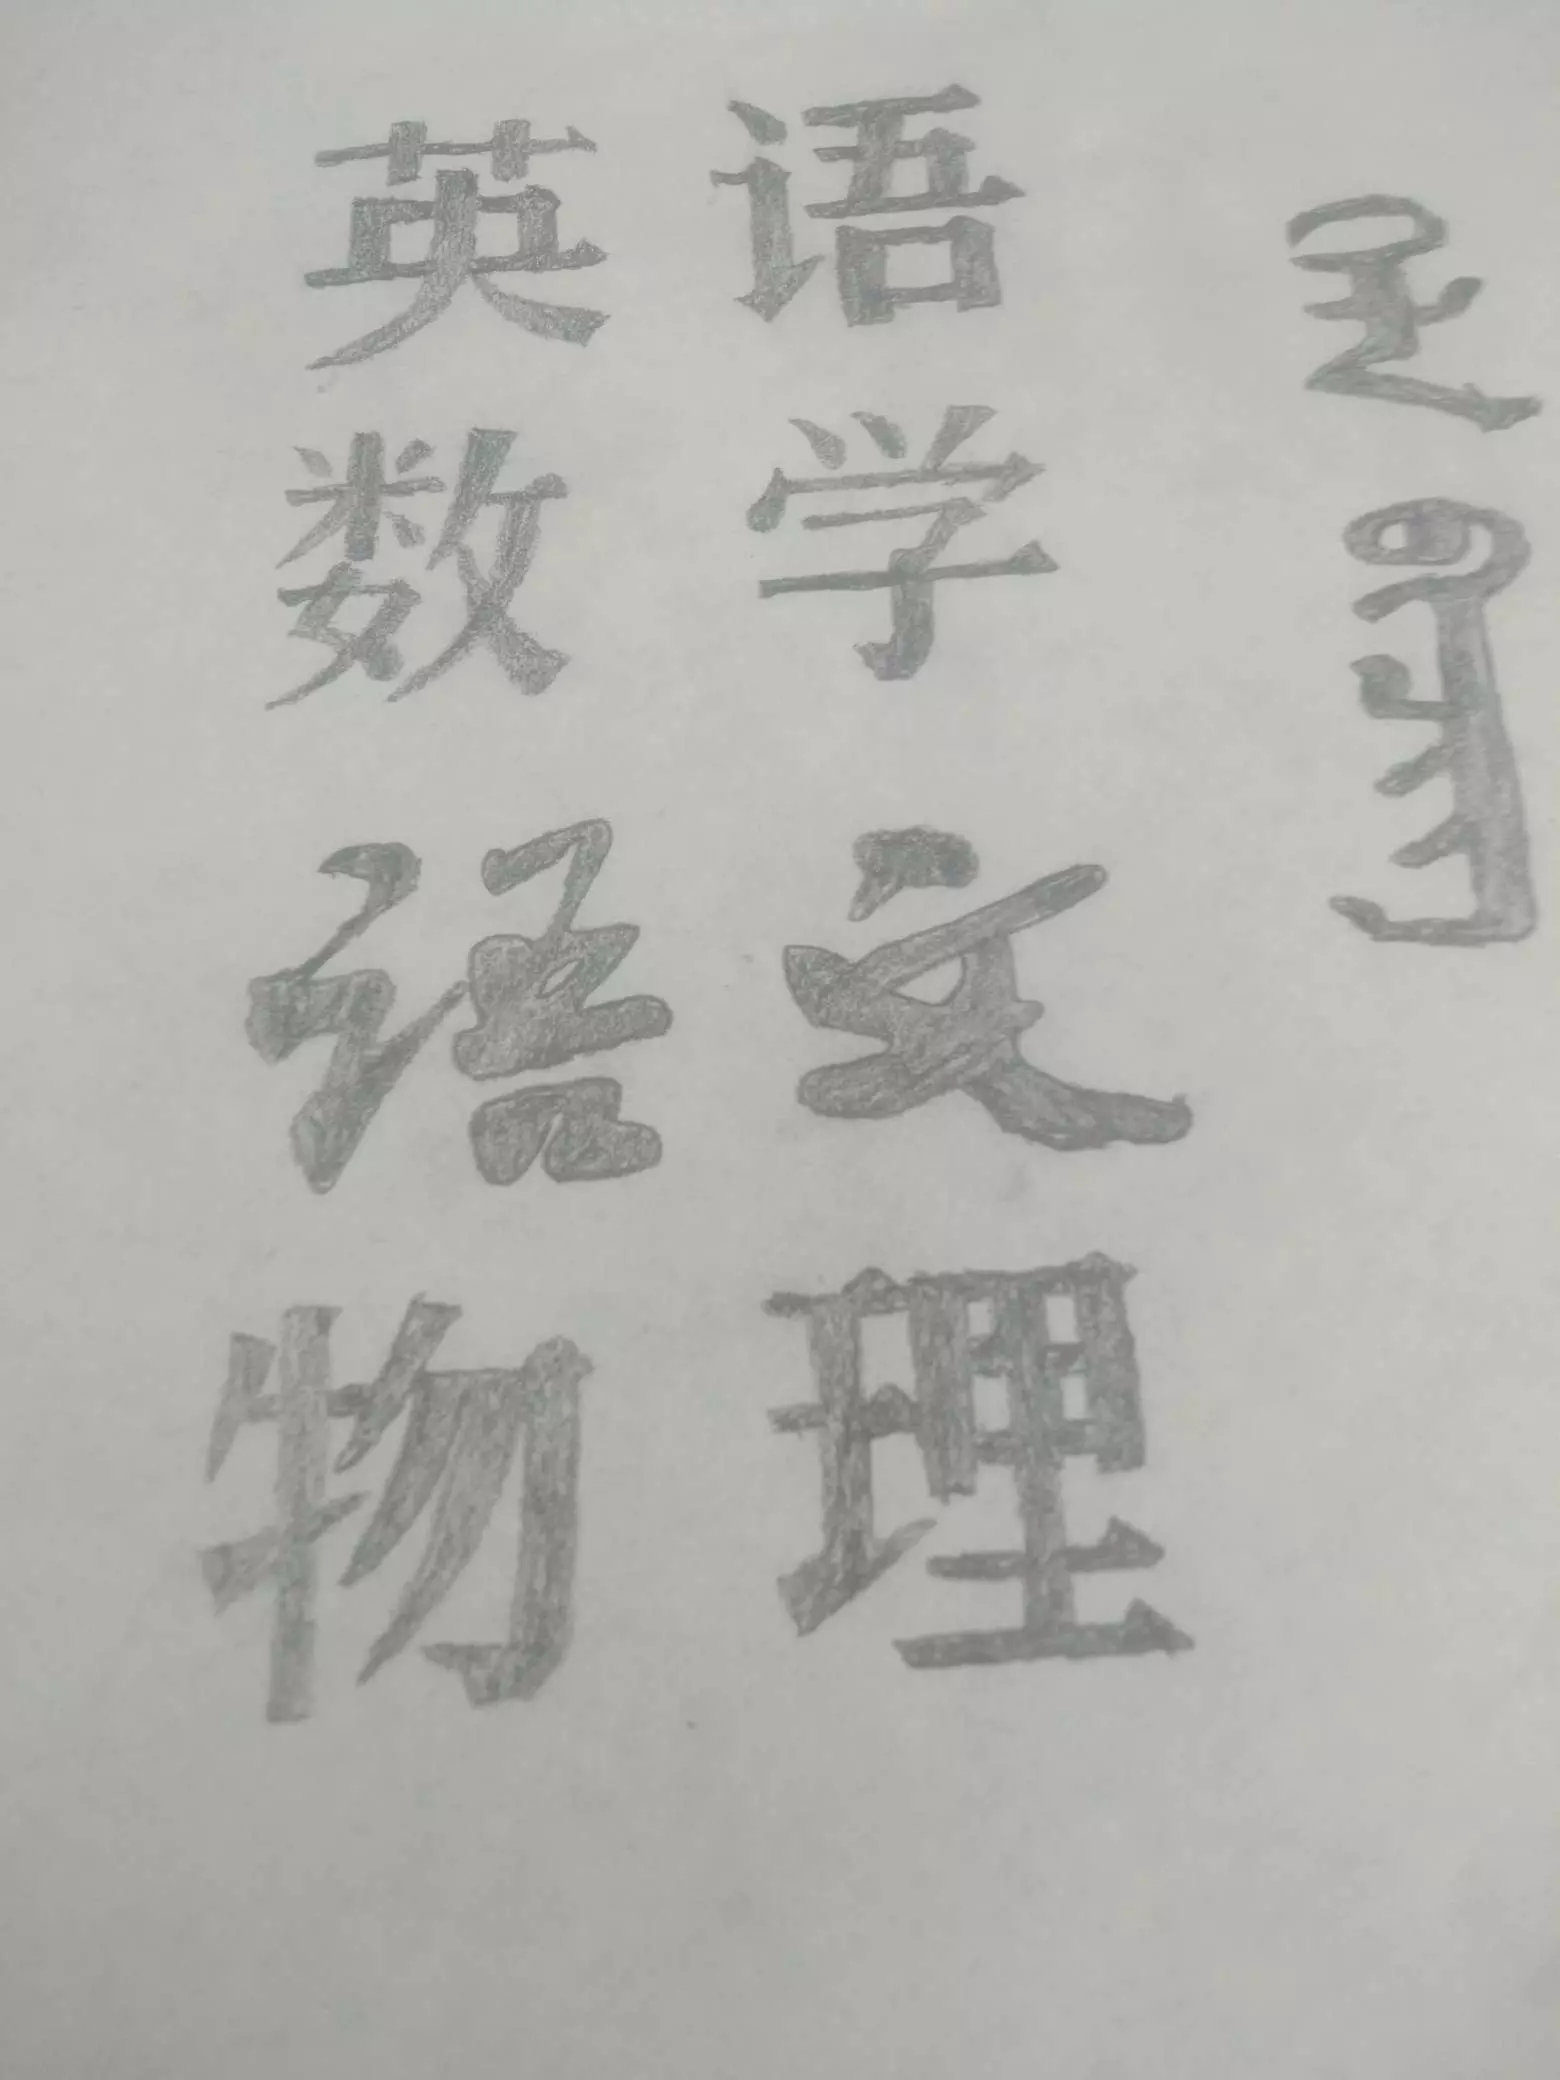 英语
数学
语文
物理